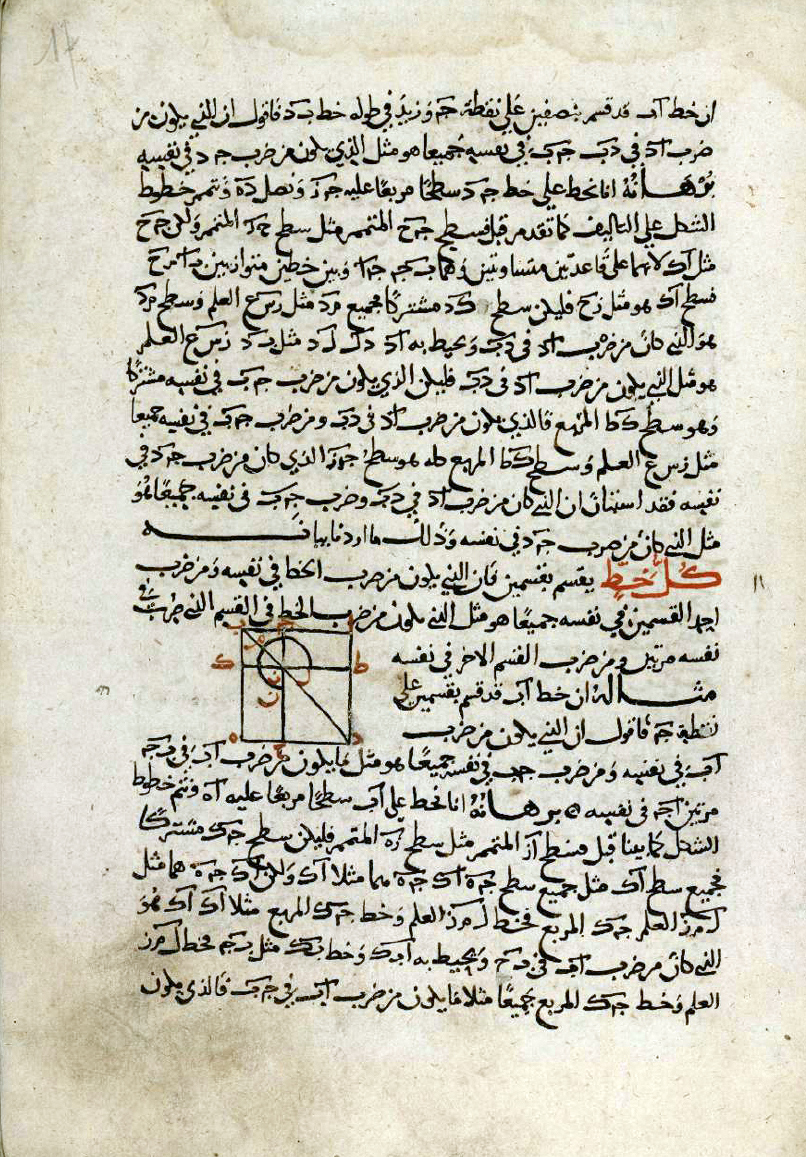 17
ان خط اب قد قسم بنصفين على نقطة جـ وزيد في طوله خط ب د فاقول ان الذي يكون من
ضرب اد في دب جـ ب في نفسه جميعا هو مثل الذي يكون من ضرب جـ د في نفسه
برهانه انا نخط على خط جـ د سطحا مربعا عليه جـ ز ونصل ده ونتمم خطوط
الشكل على التاليف كما تقدم من قبل فسطح جـ ح المتمم مثل سطح المتمم ولكن جـ ح
مثل اك لانهما على قاعدتين متساويتين وهما ب جـ جـ ا وبين خطين متوازيين
فسطح اك هو مثل زح فليكن سطح كد مشتركا فجميع مد مثل رسع العلم وسطح مد
هو الذي كان من ضرب اد في دب ويحيط به اد دل لد مثل ب د العلم
هو مثل الذي يكون من ضرب اد في دب فليكن الذي يكون من ضرب جـ ب في نفسه مشتركا
وهو سطح كط المربع فالذي يكون من ضرب اد في دب ومن ضرب جـ ب في نفسه جميعا
مثل رسع العلم وسطح كط المربع هو سطح الذي كان من ضرب جـ د في
نفسه فقد استبان ان الذي كان من ضرب اد في دب وضرب جـ ب في نفسه جميعا هو
مثل الذي كان من ضرب جـ د في نفسه وذلك ما اردنا بيانه
كل خط يقسم بقسمين فان الذي يكون من ضرب الخط في نفسه ومن ضرب
احد القسمين في نفسه جميعا هو مثل الذي يكون من ضرب الخط في القسم الذي ضرب في
نفسه مرتين ومن ضرب القسم الاخر في نفسه
مثاله ان خط اب قد قسم بقسمين على
نقطة جـ فاقول ان الذي يكون من ضرب
اب في نفسه ومن ضرب جـ ب في نفسه جميعا هو مثل ما يكون من ضرب اب في ب جـ
مرتين اجـ في نفسه برهانه انا نخط على اب سطحا مربعا عليه اه ونتم خطوط
الشكل كما بينا قبل فسطح از المتمم مثل سطح زه المتمم فليكن سطح جـ ك مشتركا
فجميع سطح اك مثل جميع سطح جـ ه اك جـ ه هما مثلا اك ولكن اك جـ ه هما مثل
ل مز العلم جـ ك المربع فخط ل مز العلم وخط جـ ك المربع مثلا اك اك هو
الذي كان من ضرب اب في ب جـ ويحيط به اب ب ك وخط ب ك مثل ب جـ فخط ل مز
العلم وخط جـ ك المربع جميعا مثلا ما يكون من ضرب اب في جـ ب فالذي يكون